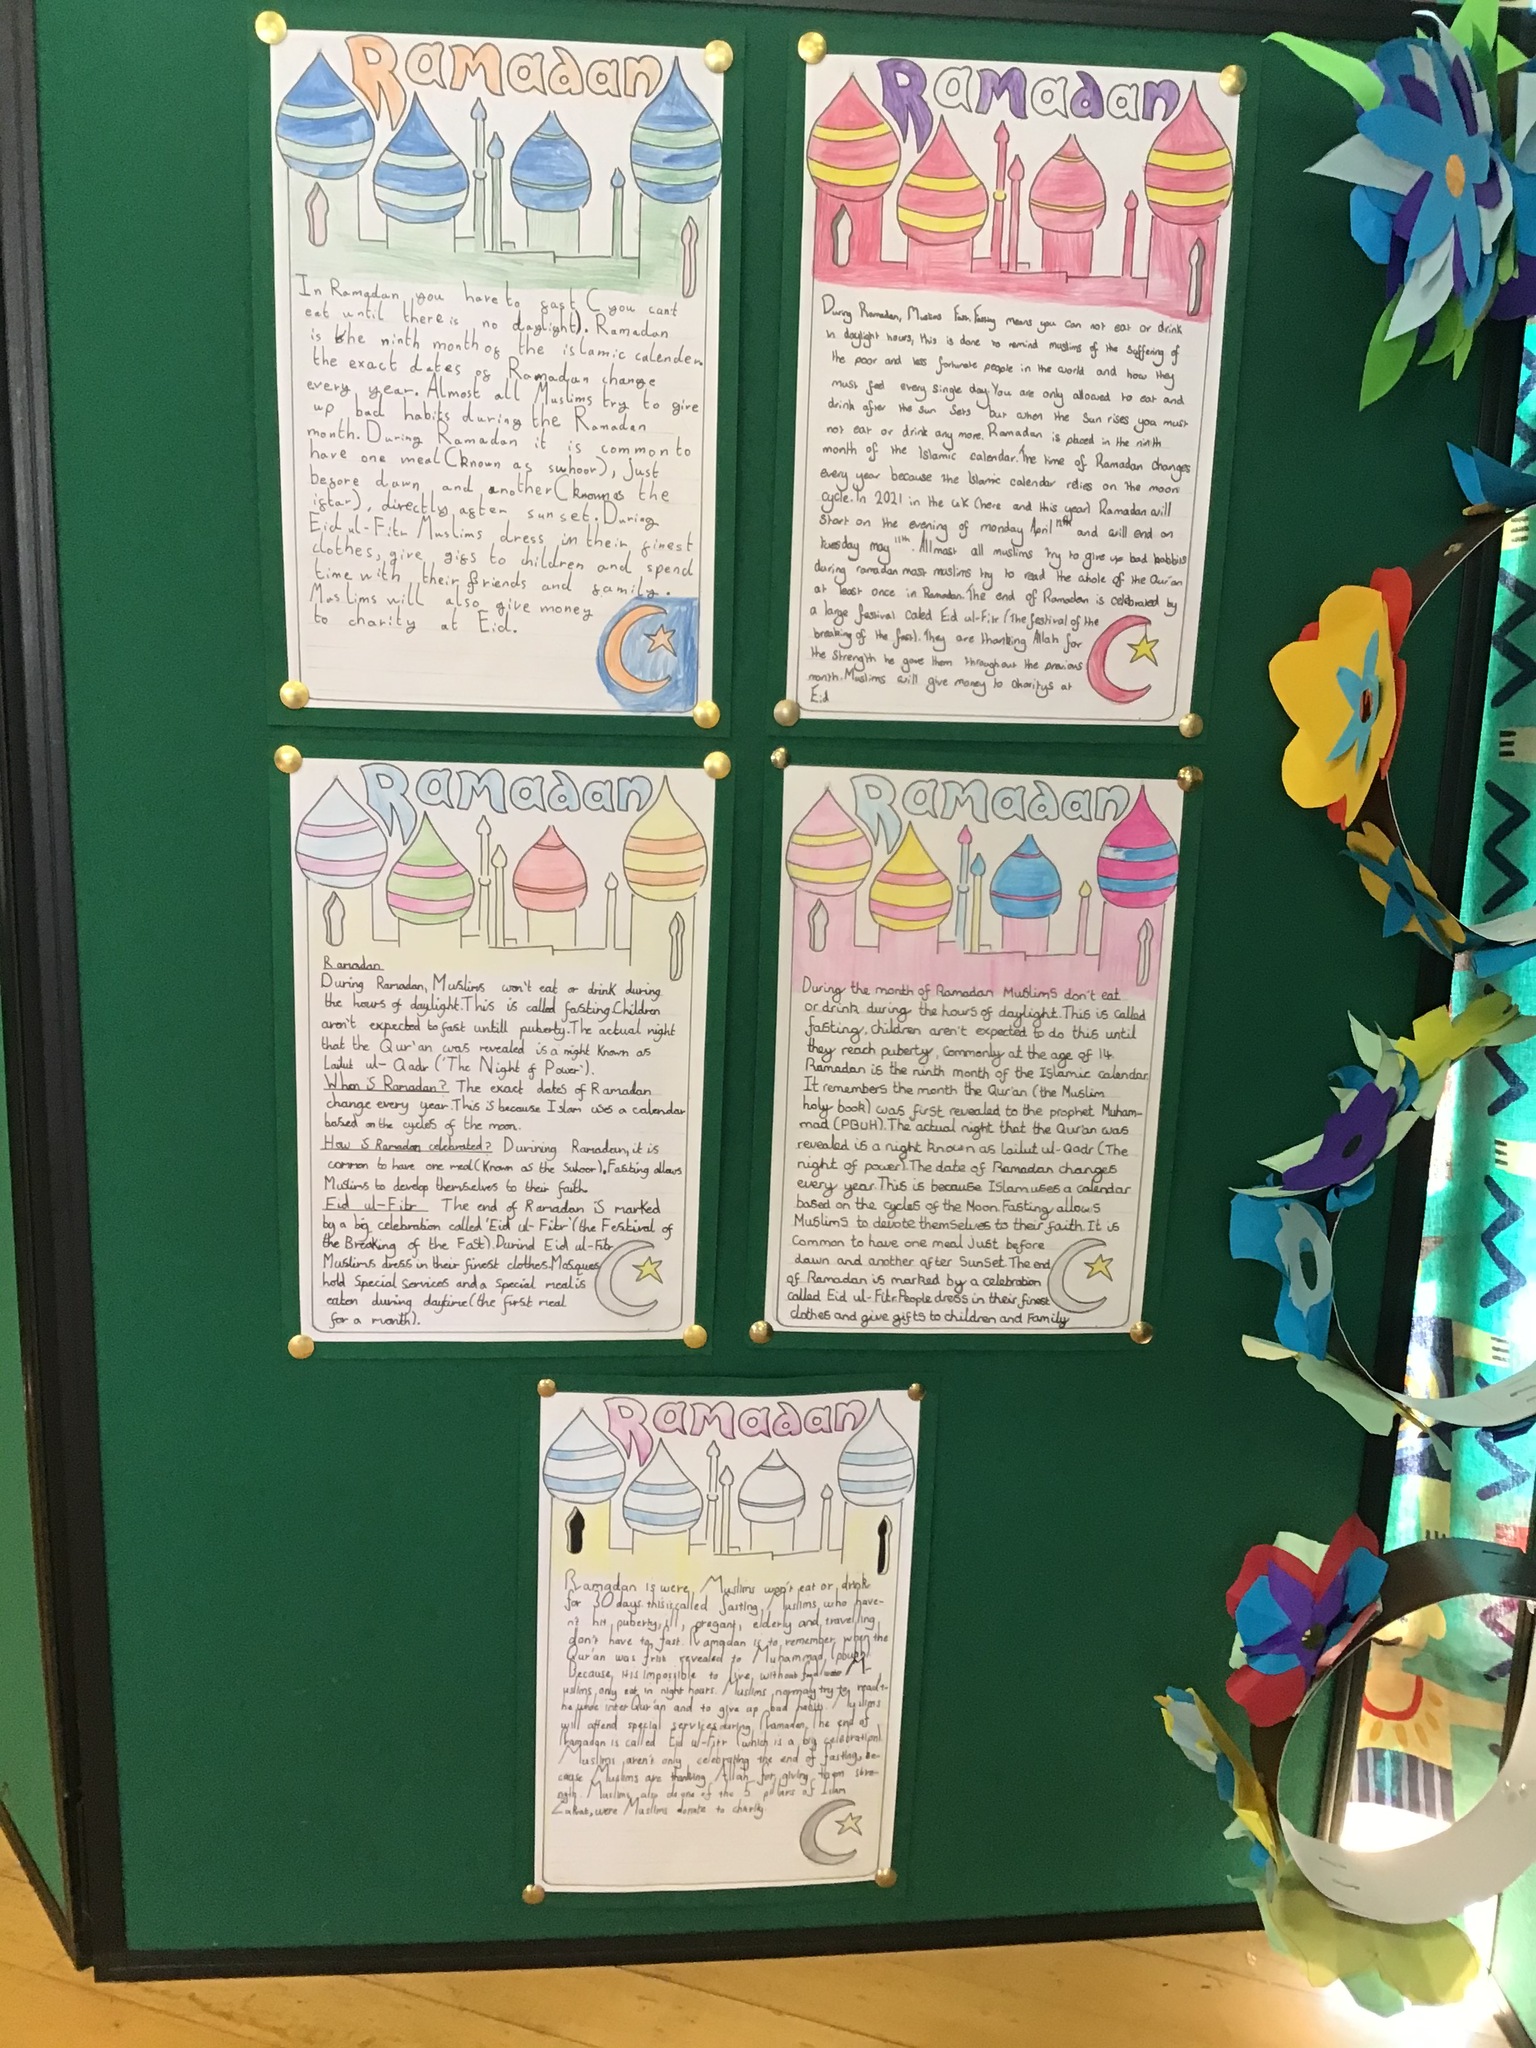 Ramadan
In Ramadan you have to fast (you cant
eat until there is no daylight). Ramadan
is the ninth month of the islamic calender.
the exact dates of Ramadan change
every year. Almost all Muslims try to give
up bad habits during the Ramadan
month. During Ramadan it is common to
have one meal (known as suhoor), just
before dawn and another (known as the
iftar), directly after sunset. During
Eid ul-Fitr Muslims dress in their finest
clothes, give gifs to children and spend
time with their friends and family.
Muslims will also give money
to charity at Eid.
Ramadan
During Ramadan, Muslims Fast. Fasting means you can not eat or drink
in daylight hours, this is done to remind muslims of the suffering of
the poor and less fortunate people in the world and how they
must feel every single day. You are only allowed to eat and
drink after the sun sets but when the sun rises you must
not eat or drink any more. Ramadan is placed in the ninth
month of the Islamic calendar. The time of Ramadan changes
every year because the Islamic calendar relies on the moon
cycle. In 2021 in the UK (here and this year) Ramadan will
start on the evening of monday April 12th and will end on
tuesday may 11th. Allmost all muslims try to give up bad habbits
during ramadan most muslims try to read the whole of the Qur'an
at least once in Ramadan. The end of Ramadan is celebrated by
a large festival called Eid ul-Fitr (The festival of the
breaking of the fast). They are thanking Allah for
the strength he gave them throughout the previous
month. Muslims will give money to charitys at
Eid
Ramadan
Ramadan
During Ramadan, Muslims won't eat or drink during
the hours of daylight. This is called fasting. Children
aren't expected to fast untill puberty. The actual night
that the Qur'an was revealed is a night known as
Lailut ul- Qadr ('The Night of Power').
When is Ramadan? The exact dates of Ramadan
change every year. This is because Islam uses a calendar
based on the cycles of the moon.
How is Ramadan celebrated? Durining Ramadan, it is
common to have one meal (known as the suhoor). Fasting allows
Muslims to develop themselves to their faith.
Eid ul-Fitr The end of Ramadan is marked
by a big celebration called 'Eid ul-Fitr' (the Festival of
the Breaking of the Fast). Durind Eid ul-Fitr
Muslims dress in their finest clothes. Mosques
hold special services and a special meal is
eaten during daytime (the first meal
for a month).
Ramadan
During the month of Ramadan Muslims don't eat
or drink during the hours of daylight. This is called
fasting, children aren't expected to do this until
they reach puberty, commonly at the age of 14.
Ramadan is the ninth month of the Islamic calendar.
It remembers the month the Qur'an (the Muslim
holy book) was first revealed to the prophet Muham-
mad (PBUH). The actual night that the Qur'an was
revealed is a night known as Lailut ul-Qadr (The
night of power). The date of Ramadan changes
every year. This is because Islam uses a calendar
based on the cycles of the Moon. Fasting allows
Muslims to devote themselves to their faith. It is
common to have one meal Just before
dawn and another after Sunset. The end
of Ramadan is marked by a celebration
called Eid ul-Fitr. People dress in their finest
clothes and give gifts to children and Family
Ramadan
Ramadan is were Muslims won't eat or drink
for 30 days. this is called fasting. Muslims who have-
n't hit puberty, ill, pregant, elderly and travelling
don't have to fast. Ramadan is to remember when the
Qur'an was first revealed to Muhammad (pbuh)
Because, it is impossible to live, without food M-
uslims only eat in night hours. Muslims normaly try to read t-
he Qur'an and to give up bad habits. Muslims
will attend special services during Ramadan. The end of
Ramadan is called Eid ul-Fitr (which is a big celebration).
Muslims aren't only celebrating the end of fasting, be-
cause Muslims are thanking Allah for giving them stre-
ngth. Muslims also do one of the 5 pillars of Islam
Zakat, were Muslims donate to charity.